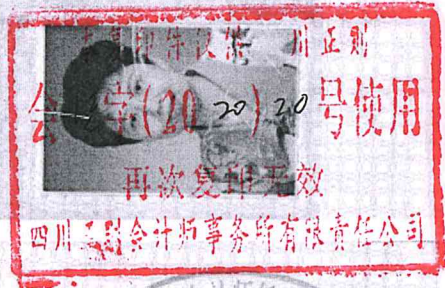 本复印件仅供四川正则
会 字(2020)20号使用
再次复印无效
四川正则会计师事务所有限责任公司